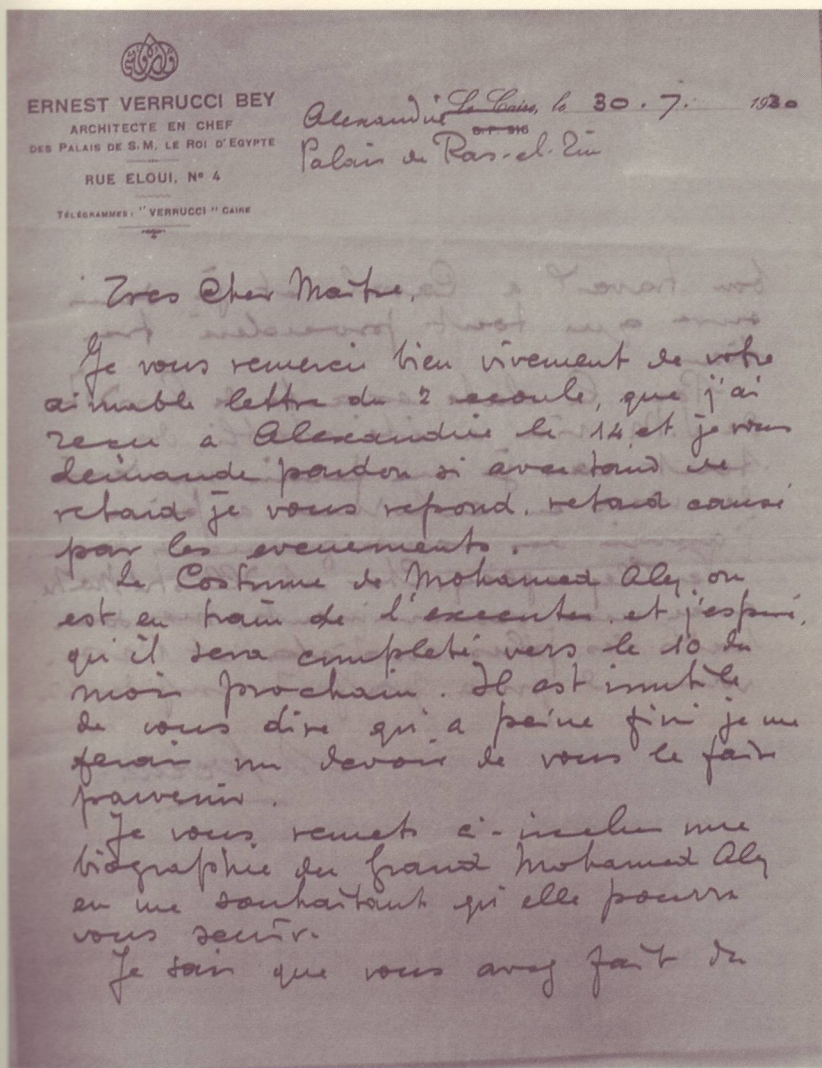 ERNEST VERRUCCI BEY
ARCHITECTE EN CHEF
DES PALAIS DE S.M. LE ROI D'EGYPTE
RUE ELOUI, No 4
TÉLÉGRAMMES: "VERRUCCI" CAIRE
Alexandrie Le Caire, le 30.7. 1930
B.P. 916
Palais de Ras-el-Tin
Tres Cher Maître,
Je vous remercie bien vivement de votre
aimable lettre du 2 ecoulé, que j'ai
reçu a Alexandrie le 14, et je vous
demande pardon si avec tant de
retard je vous repond. retard causé
par les evenements.
Le Costume de Mohamed Aly on
est en train de l'executer et j'espère,
qu'il sera completé vers le 10 du
mois prochain. Il est inutile
de vous dire qu'a peine fini je me
ferai un devoir de vous le faire
parvenir.
Je vous remets ci-inclus une
biographie du Grand Mohamed Aly
en me souhaitant qu'elle pourra
vous servir.
Je sais que vous avez fait du